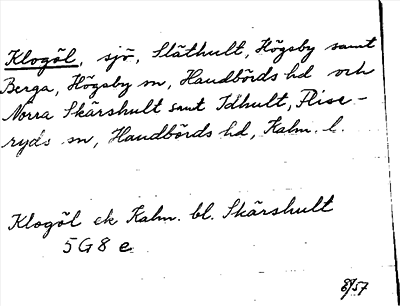 Klogöl, sjö, Släthult, Högsby samt
Berga, Högsby sn, Handbörds hd och
Norra Skärshult samt Idhult, Flise-
ryds sn, Handbörds hd, Kalm. l.
Klogöl ek Kalm. bl. Skärshult
5G8e
57